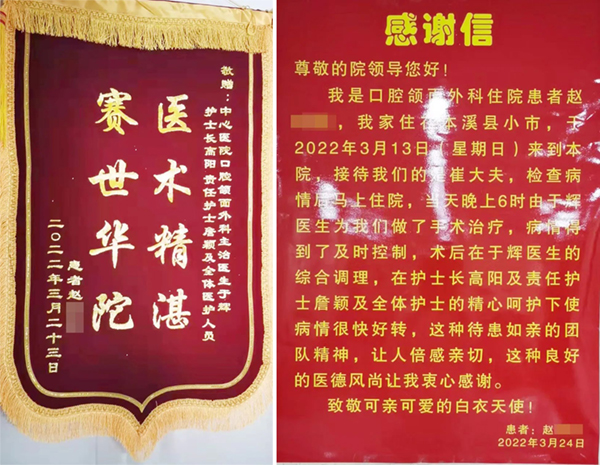 敬赠：中心医院口腔颌面外科主治医生于辉
护士长高阳 责任护士詹颖及全体医护人员
医术精湛
赛世华陀
患者赵
二〇二二年三月二十三日
感谢信
尊敬的院领导您好！
我是口腔颌面外科住院患者赵
，我家住在本溪县小市，于
2022年3月13日（星期日）来到本
院，接待我们的是崔大夫，检查病
情后马上住院，当天晚上6时由于辉
医生为我们做了手术治疗，病情得
到了及时控制，术后在于辉医生的
综合调理，在护士长高阳及责任护
士詹颖及全体护士的精心呵护下使
病情很快好转，这种待患如亲的团
队精神，让人倍感亲切，这种良好
的医德风尚让我衷心感谢。
致敬可亲可爱的白衣天使！
患者：赵
2022年3月24日